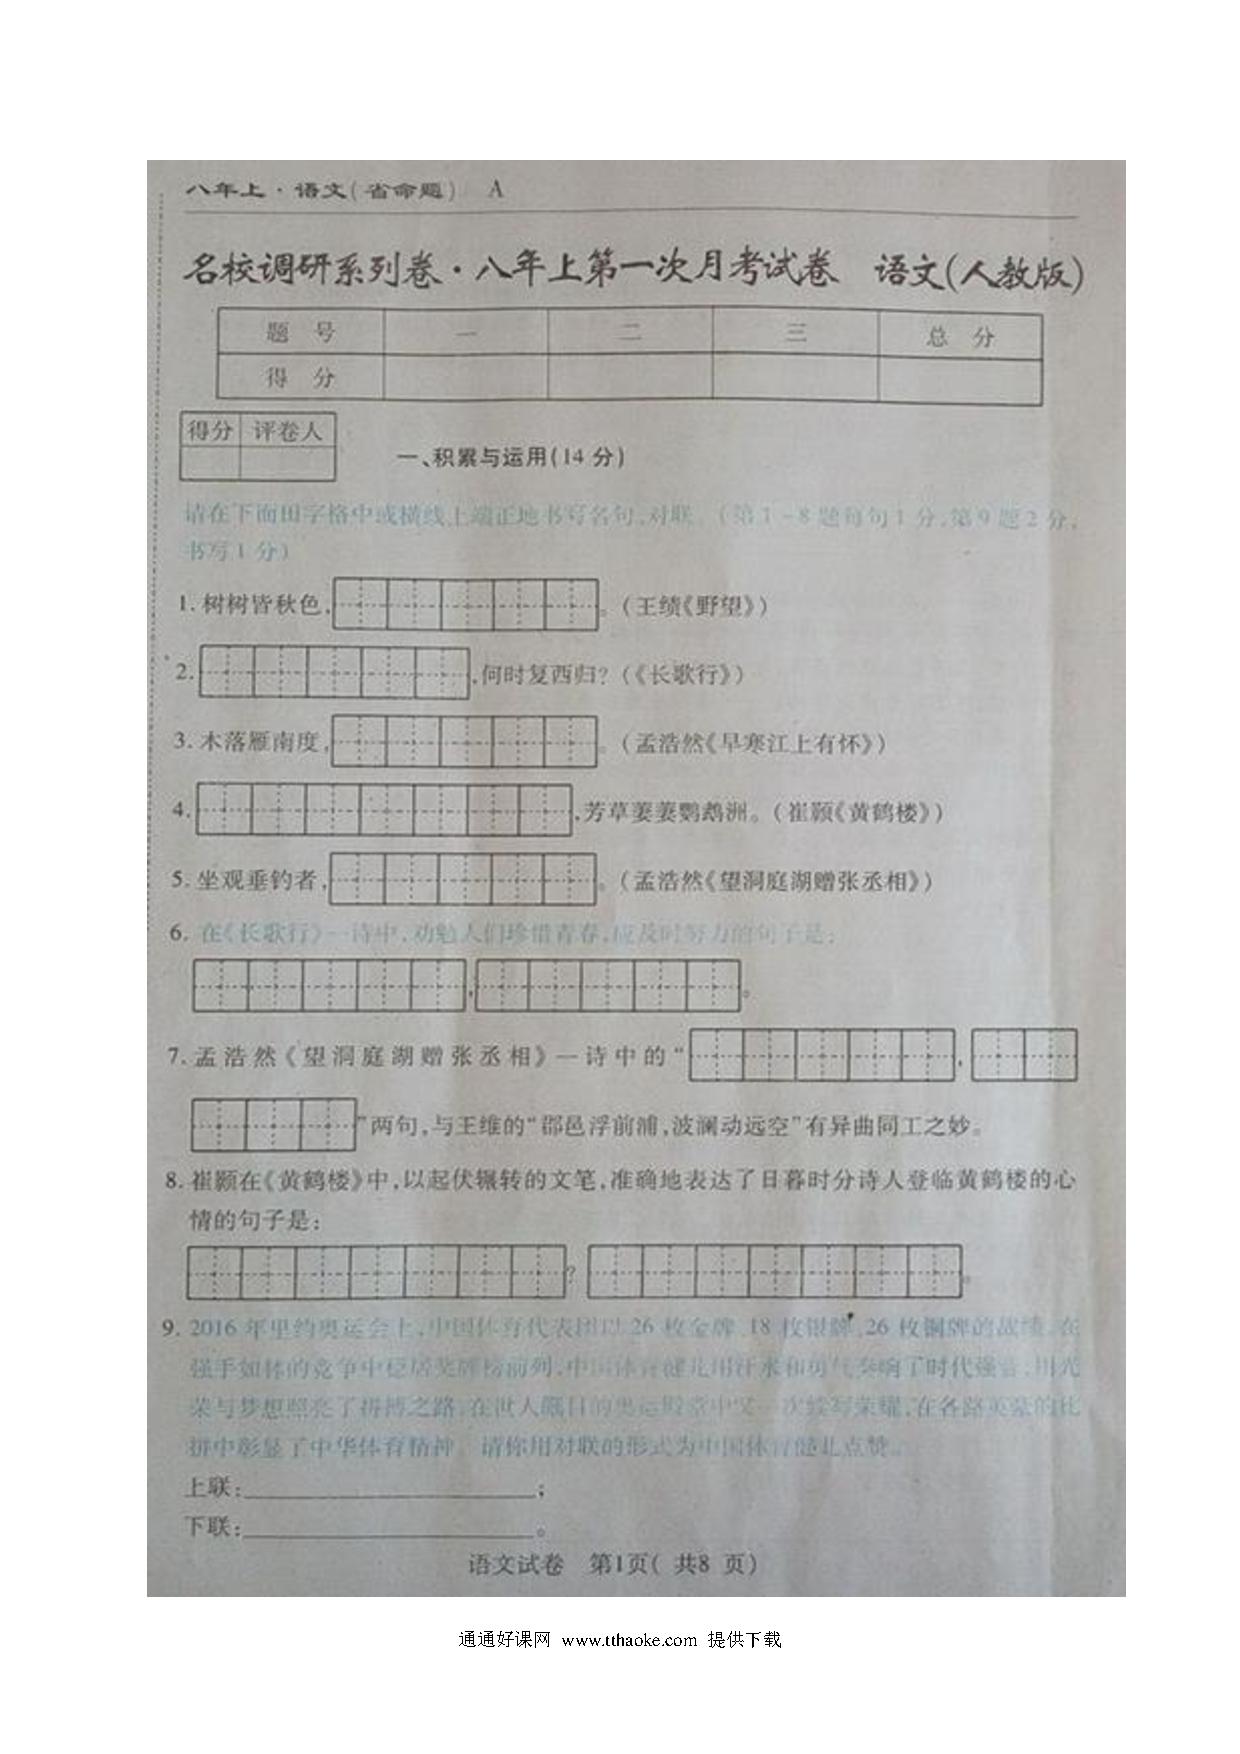 八年上·语文(省命题) A
名校调研系列卷·八年上第一次月考试卷 语文(人教版)
题 号 一 二 三 总 分
得 分
得分 评卷人
一、积累与运用(14分)
请在下面田字格中或横线上端正地书写名句、对联。(第1-8题每句1分,第9题2分,
书写1分)
1. 树树皆秋色, 。(王绩《野望》)
2. ,何时复西归?(《长歌行》)
3. 木落雁南度, 。(孟浩然《早寒江上有怀》)
4. ,芳草萋萋鹦鹉洲。(崔颢《黄鹤楼》)
5. 坐观垂钓者, 。(孟浩然《望洞庭湖赠张丞相》)
6. 在《长歌行》一诗中,劝勉人们珍惜青春,应及时努力的句子是:
, 。
7. 孟浩然《望洞庭湖赠张丞相》一诗中的“ ,
”两句,与王维的“郡邑浮前浦,波澜动远空”有异曲同工之妙。
8. 崔颢在《黄鹤楼》中,以起伏辗转的文笔,准确地表达了日暮时分诗人登临黄鹤楼的心
情的句子是:
? 。
9. 2016年里约奥运会上,中国体育代表团以26枚金牌、18枚银牌、26枚铜牌的战绩,在
强手如林的竞争中稳居奖牌榜前列,中国体育健儿用汗水和勇气奏响了时代强音,用光
荣与梦想照亮了拼搏之路,在世人瞩目的奥运殿堂中又一次续写荣耀,在各路英豪的比
拼中彰显了中华体育精神。请你用对联的形式为中国体育健儿点赞。
上联: ;
下联: 。
语文试卷 第1页( 共8 页)
通通好课网 www.tthaoke.com 提供下载